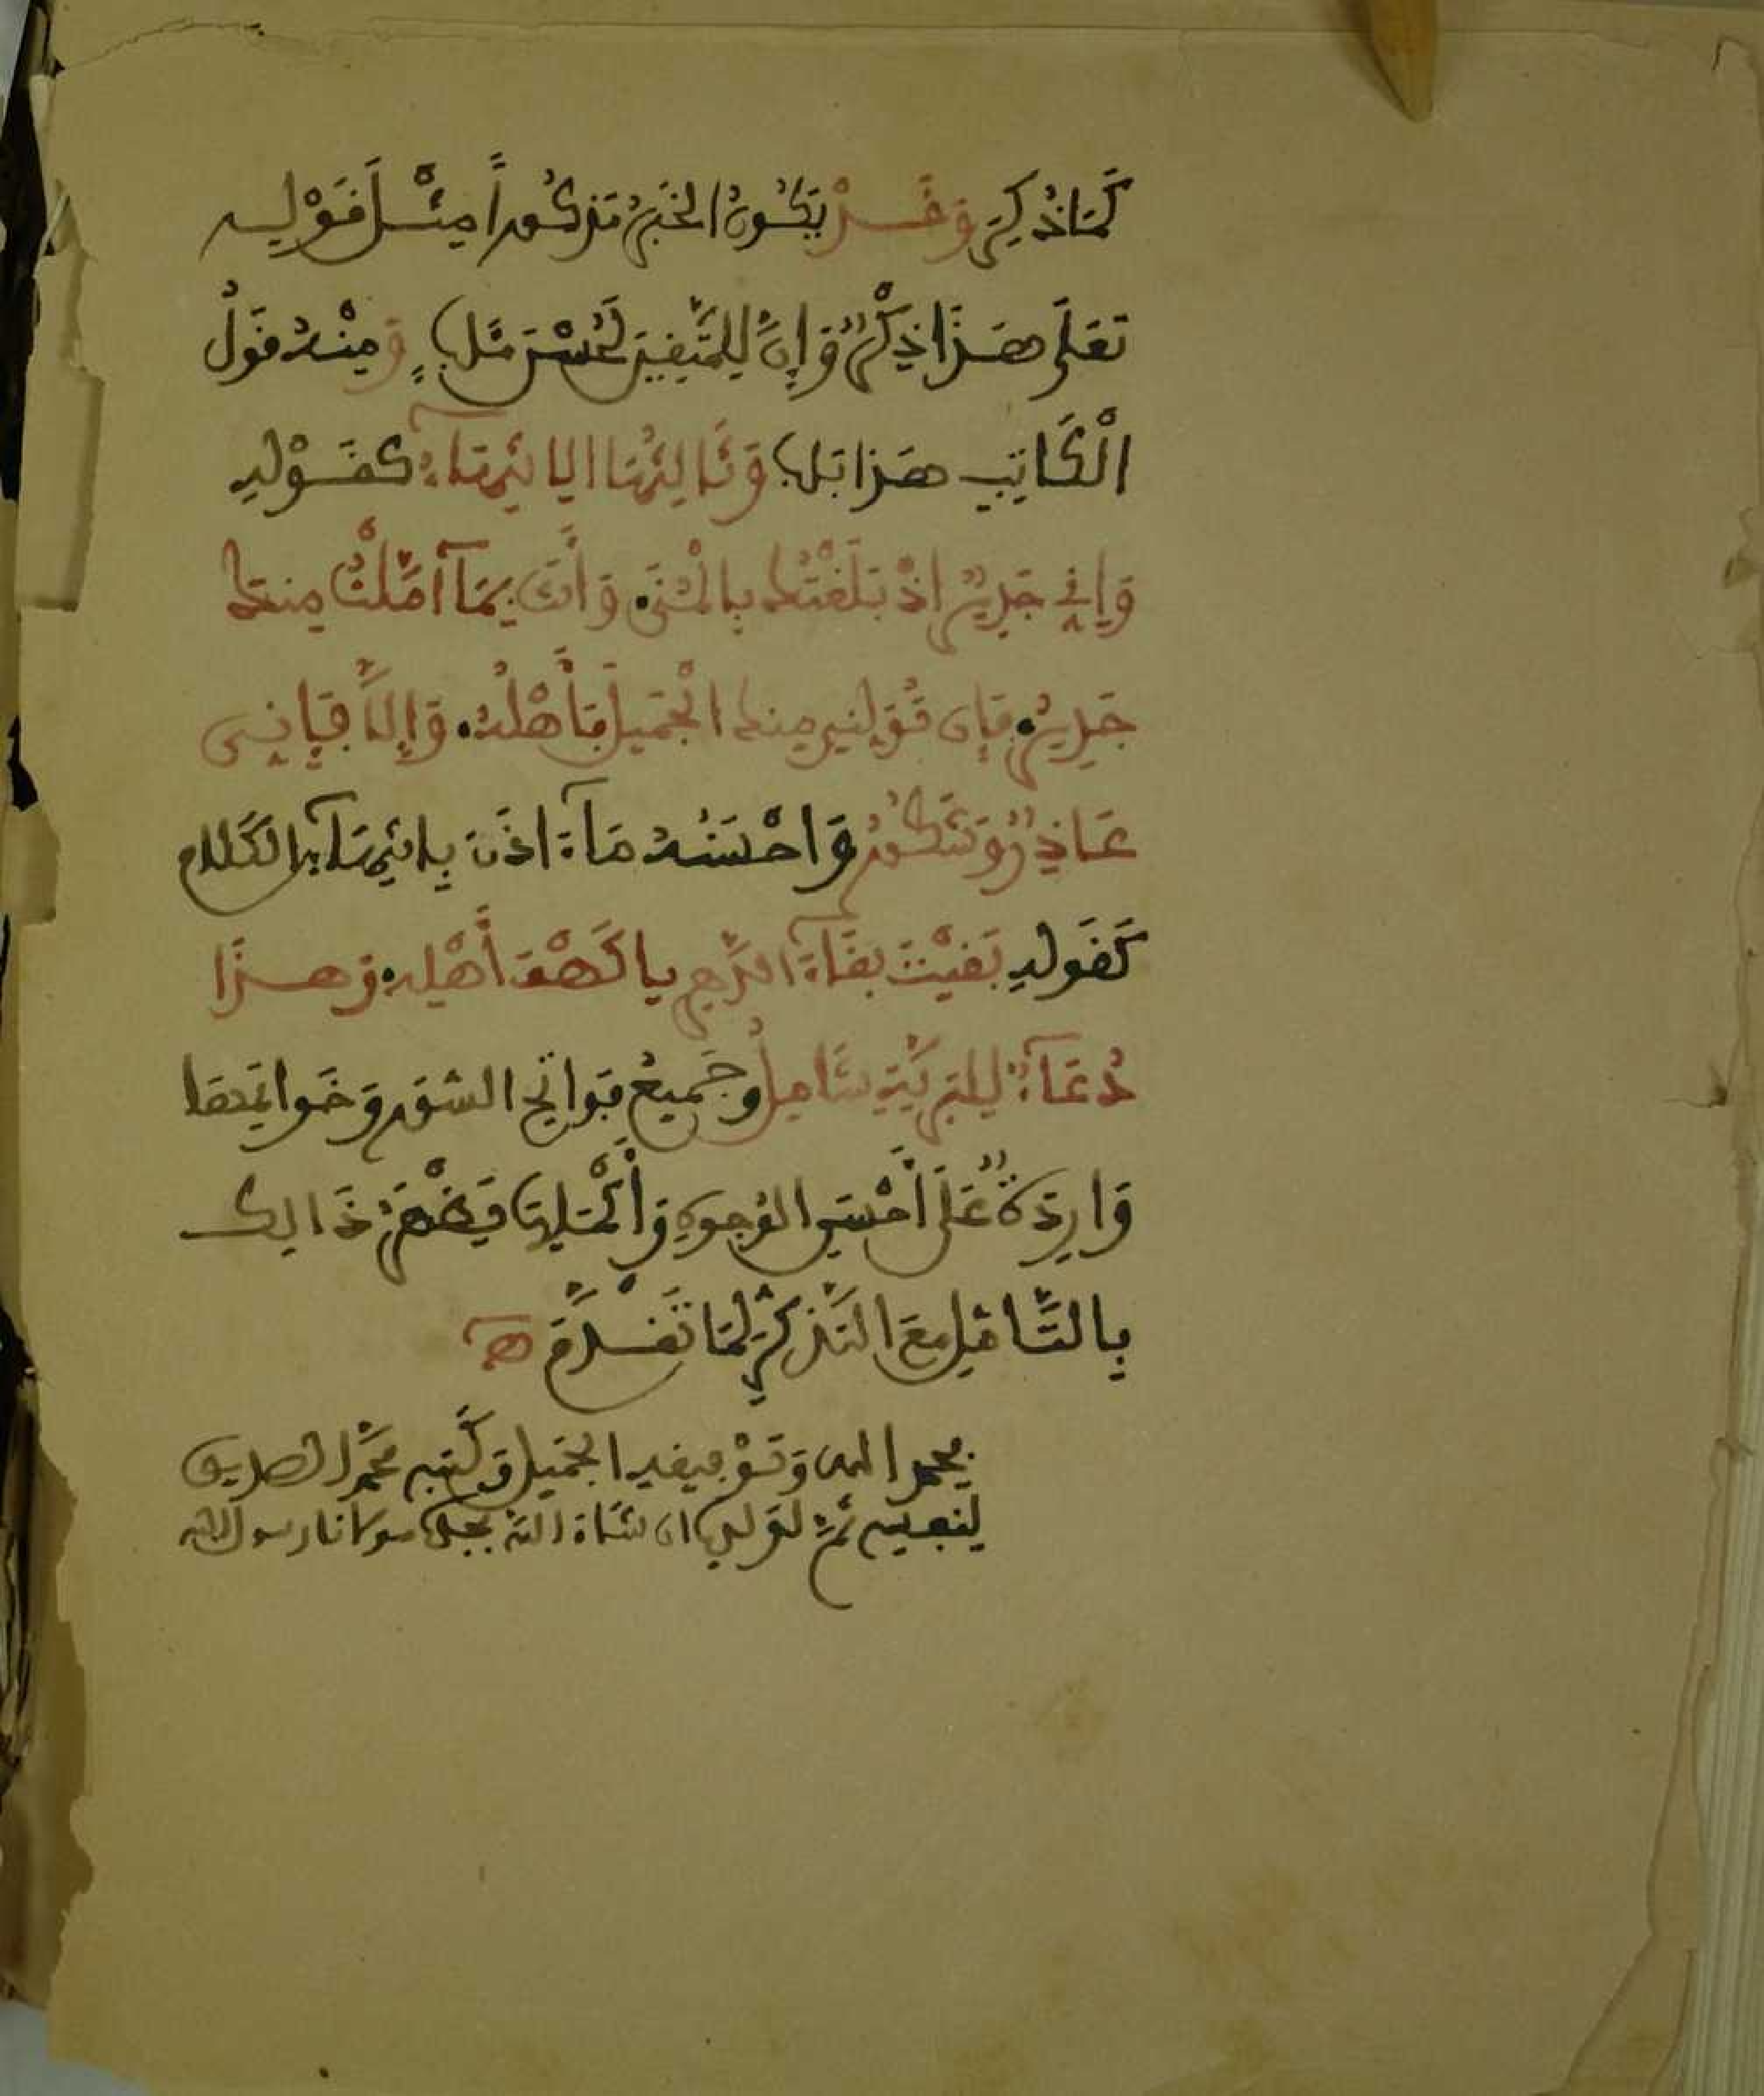 كَمَا ذُكِرَ وَقَدْ يَكُونُ الخَبَرُ مَذْكُوراً مِثْلَ قَوْلِهِ
تَعَلَى هَذَا ذِكْرٌ وَإِنَّ لِلْمُتَّقِينَ لَحُسْنَ مَئَابٍ وَمِنْهُ قَوْلُ
الْكَاتِبِ هَذَا بَابٌ وَثَالِثُهَا الِانْتِهَاءُ كَقَوْلِهِ
وَإِنِّي جَدِيرٌ إِذْ بَلَغْتُكَ بِالْمُنَى وَأَنْتَ بِمَا أَمَّلْتُ مِنكَ
جَدِيرُ فَإِن تُوَلِّنِي مِنكَ الْجَمِيلَ فَأَهْلُهُ وَإِلَّا فَإِنِّي
عَاذِرٌ وَشَكُورُ وَاحْسَنُهُ مَا ءَاذَنَ بِانْتِهَاءِ الْكَلَامِ
كَقَولِهِ بَقِيْتَ بَقَاءَ الدَّهْرِ يا كَهْفَ أَهْلِهِ وَهَذَا
دُعَاءٌ لِلْبَرِيَّةِ شَامِلُ وجَمِيعُ فَوَاتِحِ السُّوَرِ وَخَوَاتِمِهَا
وَارِدَةٌ عَلَى أَحْسَنِ الوُجُوهِ وَأَكْمَلِهَا يَظْهَرُ ذَالِكَ
بِالتَّأَمُّلِ مَعَ التَّذَكُّرِ لِمَا تَقَدَّمَ هـ
بحمد الله وَتَوْفِيقِهِ الجَمِيلِ وَكَتَبَهُ مُحَمَّد الصديق
لِنَفْسِهِ ثُمَّ ان شَاءَ اللَّهُ بجاه مولانا رسول الله